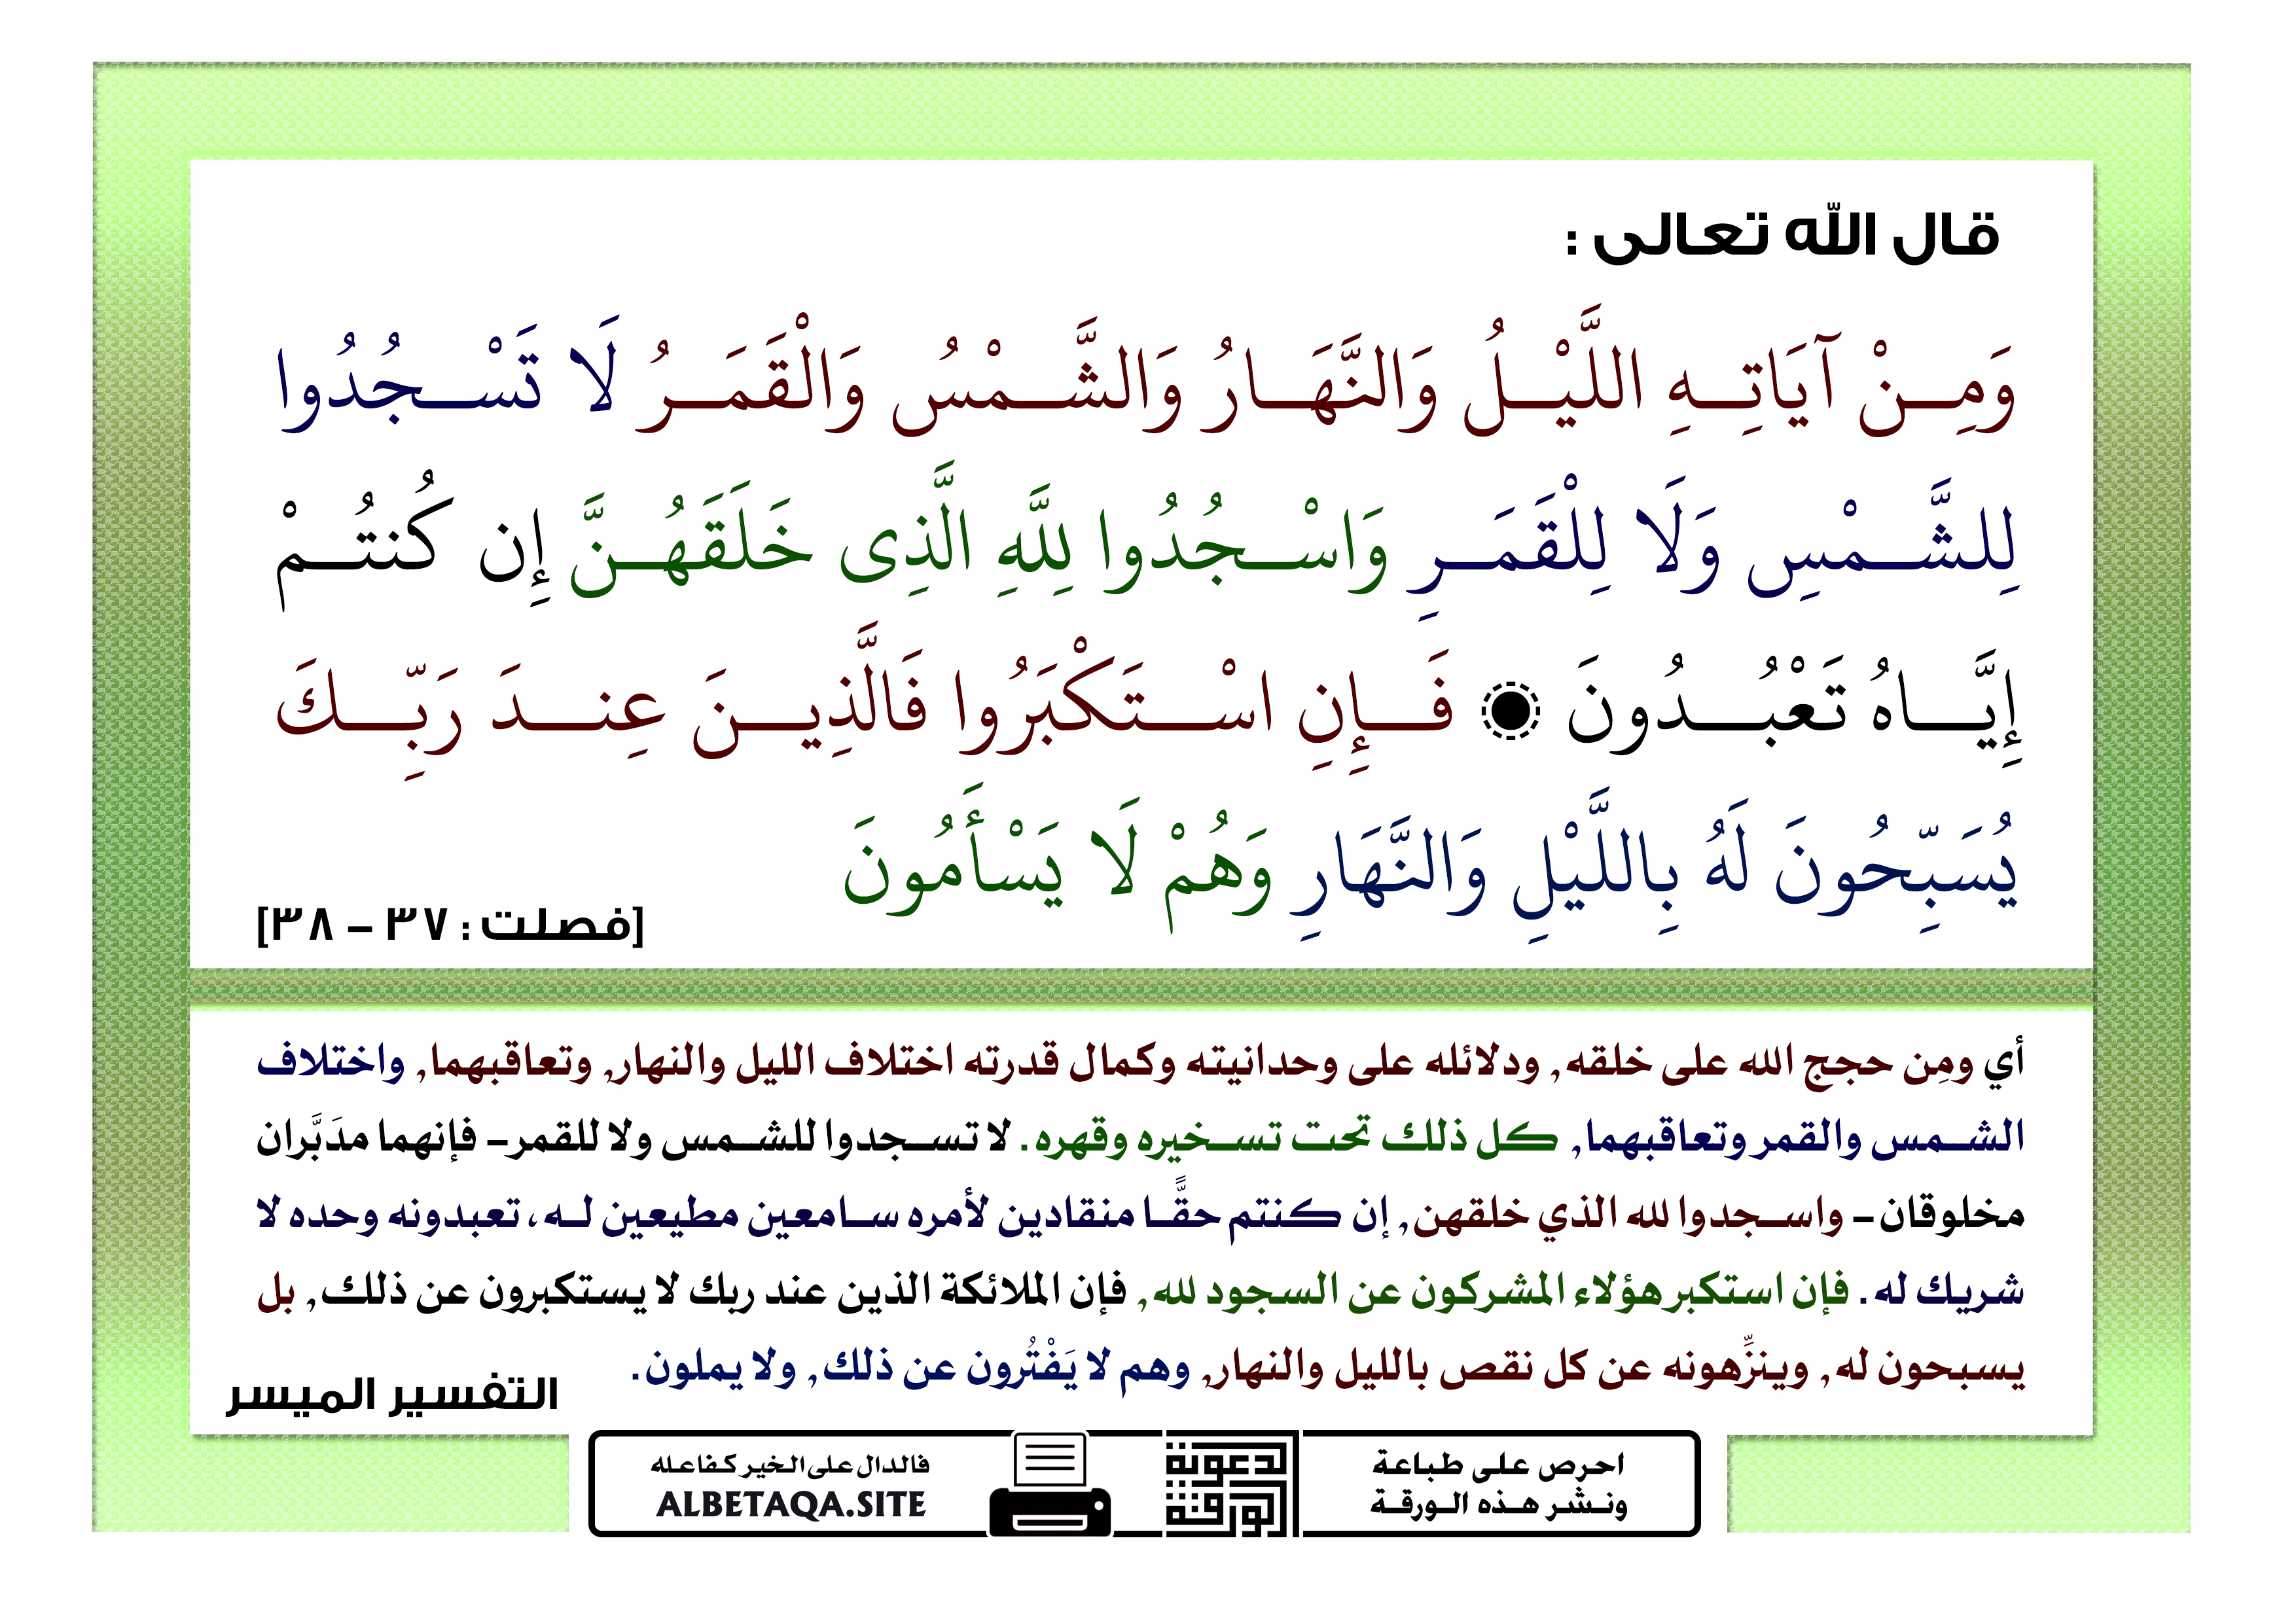 قال الله تعالى :
وَمِنْ آيَاتِهِ اللَّيْلُ وَالنَّهَارُ وَالشَّمْسُ وَالْقَمَرُ لَا تَسْجُدُوا
لِلشَّمْسِ وَلَا لِلْقَمَرِ وَاسْجُدُوا لِلَّهِ الَّذِى خَلَقَهُنَّ إِن كُنتُمْ
إِيَّاهُ تَعْبُدُونَ ۞ فَإِنِ اسْتَكْبَرُوا فَالَّذِينَ عِندَ رَبِّكَ
يُسَبِّحُونَ لَهُ بِاللَّيْلِ وَالنَّهَارِ وَهُمْ لَا يَسْأَمُونَ
[فصلت : ٣٧ – ٣٨]
أي ومِن حجج الله على خلقه, ودلائله على وحدانيته وكمال قدرته اختلاف الليل والنهار, وتعاقبهما, واختلاف
الشمس والقمر وتعاقبهما, كل ذلك تحت تسخيره وقهره. لا تسجدوا للشمس ولا للقمر– فإنهما مدَبَّران
مخلوقان– واسجدوا لله الذي خلقهن, إن كنتم حقًّا منقادين لأمره سامعين مطيعين له، تعبدونه وحده لا
شريك له. فإن استكبر هؤلاء المشركون عن السجود لله, فإن الملائكة الذين عند ربك لا يستكبرون عن ذلك, بل
يسبحون له, وينزِّهونه عن كل نقص بالليل والنهار, وهم لا يَفْتُرون عن ذلك, ولا يملون.
التفسير الميسر
احرص على طباعة
ونشر هذه الورقة
الدعوية
الورقة
فالدال على الخير كفاعله
ALBETAQA.SITE